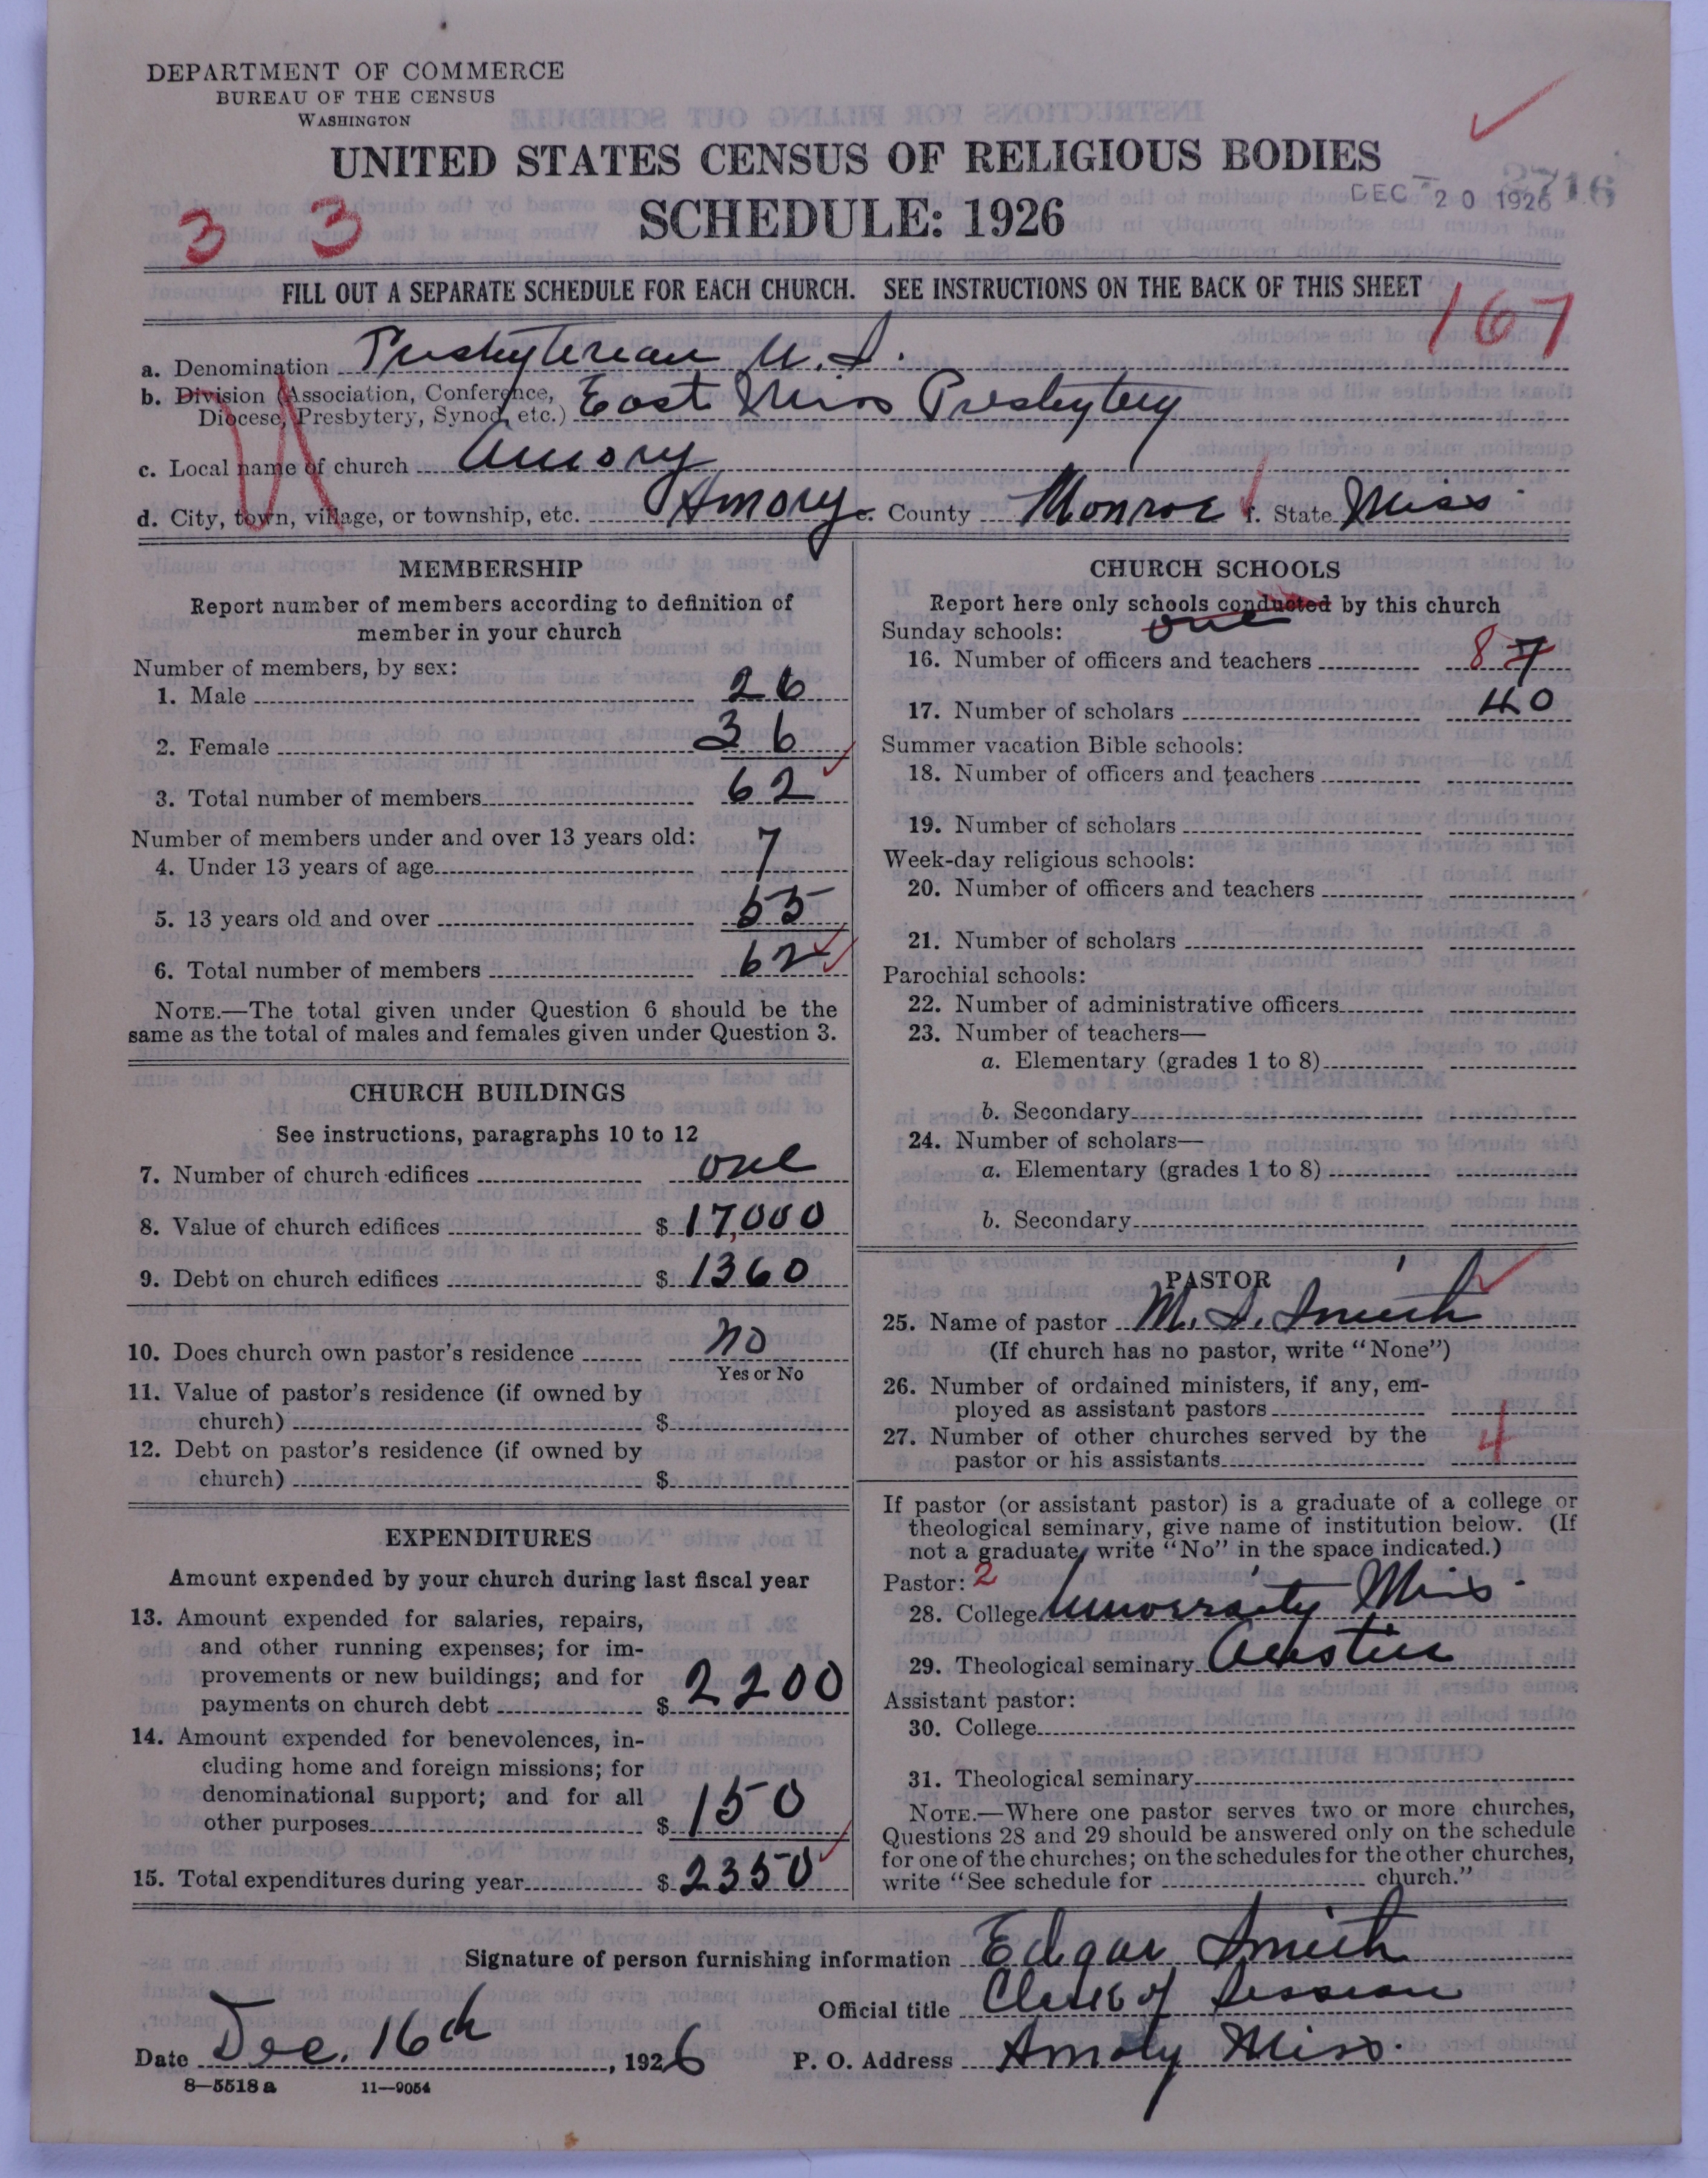 DEPARTMENT OF COMMERCE
BUREAU OF THE CENSUS
WASHINGTON
UNITED STATES CENSUS OF RELIGIOUS BODIES
SCHEDULE: 1926
DEC 20 1926
3 3
FILL OUT A SEPARATE SCHEDULE FOR EACH CHURCH. SEE INSTRUCTIONS ON THE BACK OF THIS SHEET
167
a. Denomination Presbyterian U.S.
b. Division (Association, Conference,
Diocese, Presbytery, Synod, etc.) East Miss Presbytery
c. Local name of church Amory
d. City, town, village, or township, etc. Amory e. County Monroe f. State Miss.
MEMBERSHIP
Report number of members according to definition of
member in your church
Number of members, by sex:
1. Male 26
2. Female 36
3. Total number of members 62
Number of members under and over 13 years old:
4. Under 13 years of age 7
5. 13 years old and over 55
6. Total number of members 62
NOTE.—The total given under Question 6 should be the
same as the total of males and females given under Question 3.
CHURCH BUILDINGS
See instructions, paragraphs 10 to 12
7. Number of church edifices one
8. Value of church edifices $ 17,000
9. Debt on church edifices $ 1360
10. Does church own pastor's residence no
Yes or No
11. Value of pastor's residence (if owned by
church) $
12. Debt on pastor's residence (if owned by
church) $
EXPENDITURES
Amount expended by your church during last fiscal year
13. Amount expended for salaries, repairs,
and other running expenses; for im-
provements or new buildings; and for
payments on church debt $ 2200
14. Amount expended for benevolences, in-
cluding home and foreign missions; for
denominational support; and for all
other purposes $ 150
15. Total expenditures during year $ 2350
CHURCH SCHOOLS
Report here only schools conducted by this church
Sunday schools: one
16. Number of officers and teachers 8 7
17. Number of scholars 40
Summer vacation Bible schools:
18. Number of officers and teachers
19. Number of scholars
Week-day religious schools:
20. Number of officers and teachers
21. Number of scholars
Parochial schools:
22. Number of administrative officers
23. Number of teachers—
a. Elementary (grades 1 to 8)
b. Secondary
24. Number of scholars—
a. Elementary (grades 1 to 8)
b. Secondary
PASTOR
25. Name of pastor M. S. Smith
(If church has no pastor, write "None")
26. Number of ordained ministers, if any, em-
ployed as assistant pastors
27. Number of other churches served by the
pastor or his assistants 4
If pastor (or assistant pastor) is a graduate of a college or
theological seminary, give name of institution below. (If
not a graduate, write "No" in the space indicated.)
Pastor: 2
28. College University Miss.
29. Theological seminary Austin
Assistant pastor:
30. College
31. Theological seminary
NOTE.—Where one pastor serves two or more churches,
Questions 28 and 29 should be answered only on the schedule
for one of the churches; on the schedules for the other churches,
write "See schedule for church."
Signature of person furnishing information Edgar Smith
Official title Clerk of Session
Date Dec. 16th, 1926 P. O. Address Amory Miss.
8—5518 a 11—9054